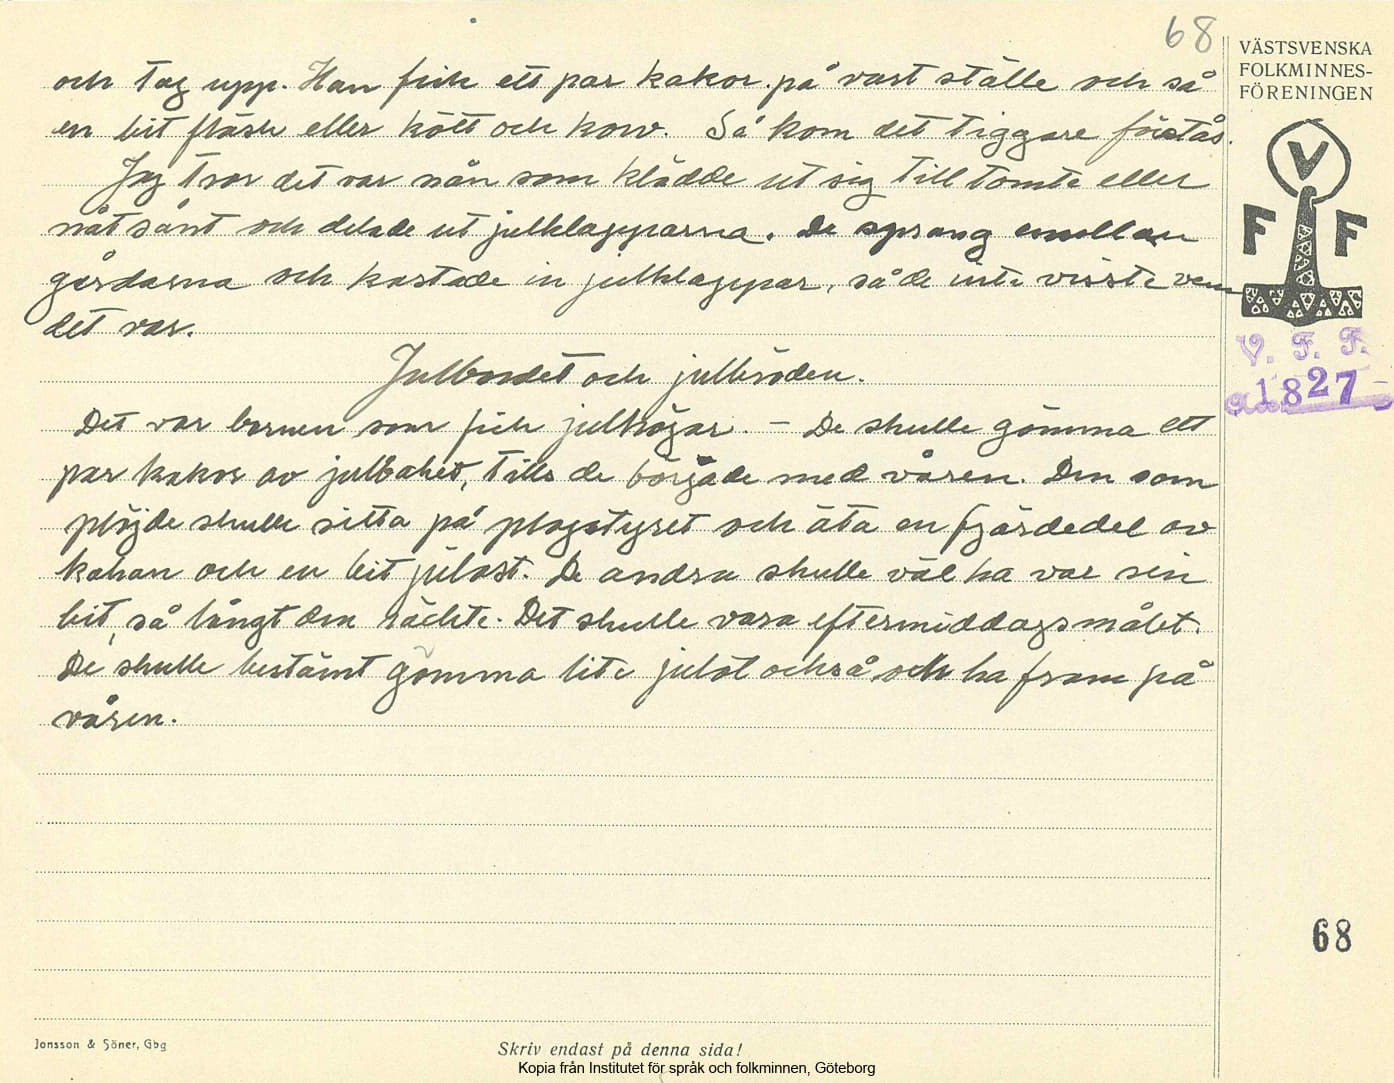 68
VÄSTSVENSKA
FOLKMINNES-
FÖRENINGEN
och tog upp. Han fick ett par kakor på vart ställe och så
en bit fläsk eller kött och korv. Så kom det tiggare förstås.
Jag tror det var nån som klädde ut sig till tomte eller
nåt sånt och delade ut julklapparna. De sprang emellan
gårdarna och kastade in julklappar, så de inte visste vem
det var.
V
F F
V. F. F.
1827
Julbordet och julbröden.
Det var barnen som fick julhögar. – De skulle gömma ett
par kakor av julbaket, tills de började med våren. Den som
plöjde skulle sitta på plogstyret och äta en fjärdedel av
kakan och en bit julost. De andra skulle väl ha var sin
bit, så långt den räckte. Det skulle vara eftermiddagsmålet.
De skulle bestämt gömma lite julöl också och ha fram på
våren.
68
Jonsson & Söner, Gbg
Skriv endast på denna sida!
Kopia från Institutet för språk och folkminnen, Göteborg